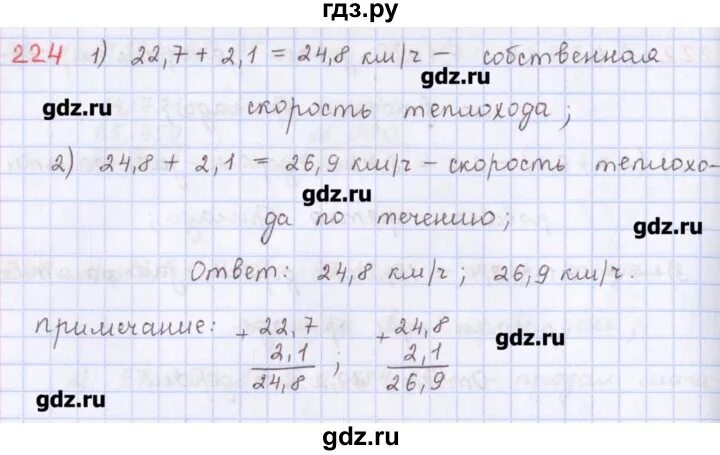 гдз.ру
224 1) 22,7 + 2,1 = 24,8 км/ч – собственная
gdz.ru
gdz.ru
скорость теплохода;
2) 24,8 + 2,1 = 26,9 км/ч – скорость теплохо-
gdz.ru
да по течению;
gdz.ru
Ответ: 24,8 км/ч; 26,9 км/ч.
примечание: + 22,7 + 24,8
2,1 ; 2,1
gdz.ru
24,8 26,9
gdz.ru
gdz.ru